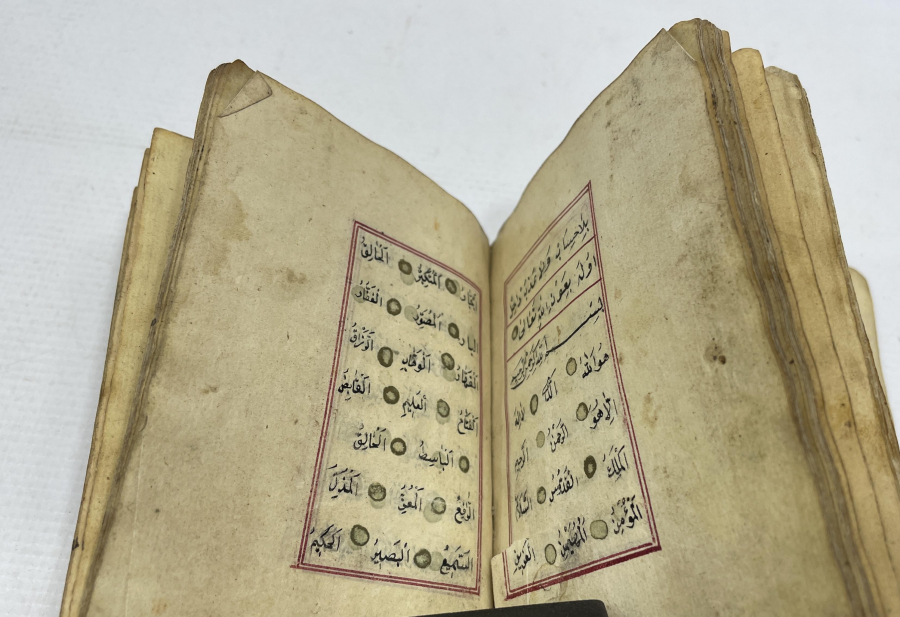 بلا حساب ولا عذاب
اوله بعون الله تعالى
بسم الله الرحمن الرحيم
هو الله الذي لا اله
الا هو الرحمن الرحيم
الملك القدوس السلام
المؤمن المهيمن العزيز
الجبار المتكبر الخالق
البارئ المصور الغفار
القهار الوهاب الرزاق
الفتاح العليم القابض
الباسط الخالق
الرافع المعز المذل
السميع البصير الحكيم